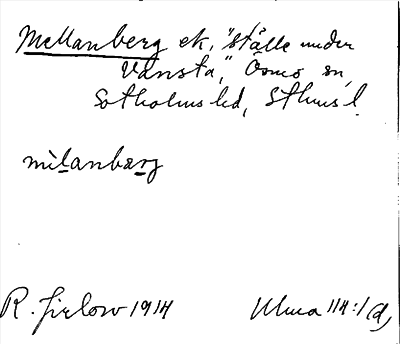 Mellanberg ek, "ställe under
Vansta", Ösmo sn,
Sotholms hd, Sthms l.
mìlanbærg
R. Jirlow 1914 Ulma 114:1(d)